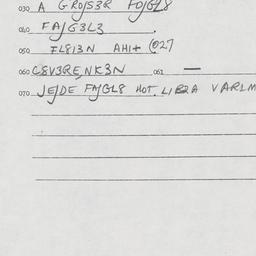 030 A GROJS3R FOJGL8
040 FAJG3L3.
050 FL8I3N AHIT @027
060 C8V3RE,NK3N 061 —
070 JEJDE FMJGL8 HOT. LIBRA VARLM